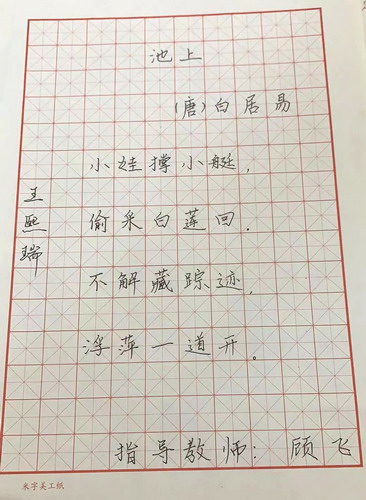 池上
(唐)白居易
小娃撑小艇,
偷采白莲回.
不解藏踪迹,
浮萍一道开。
王熙瑞
指导教师:顾飞
米字美工纸